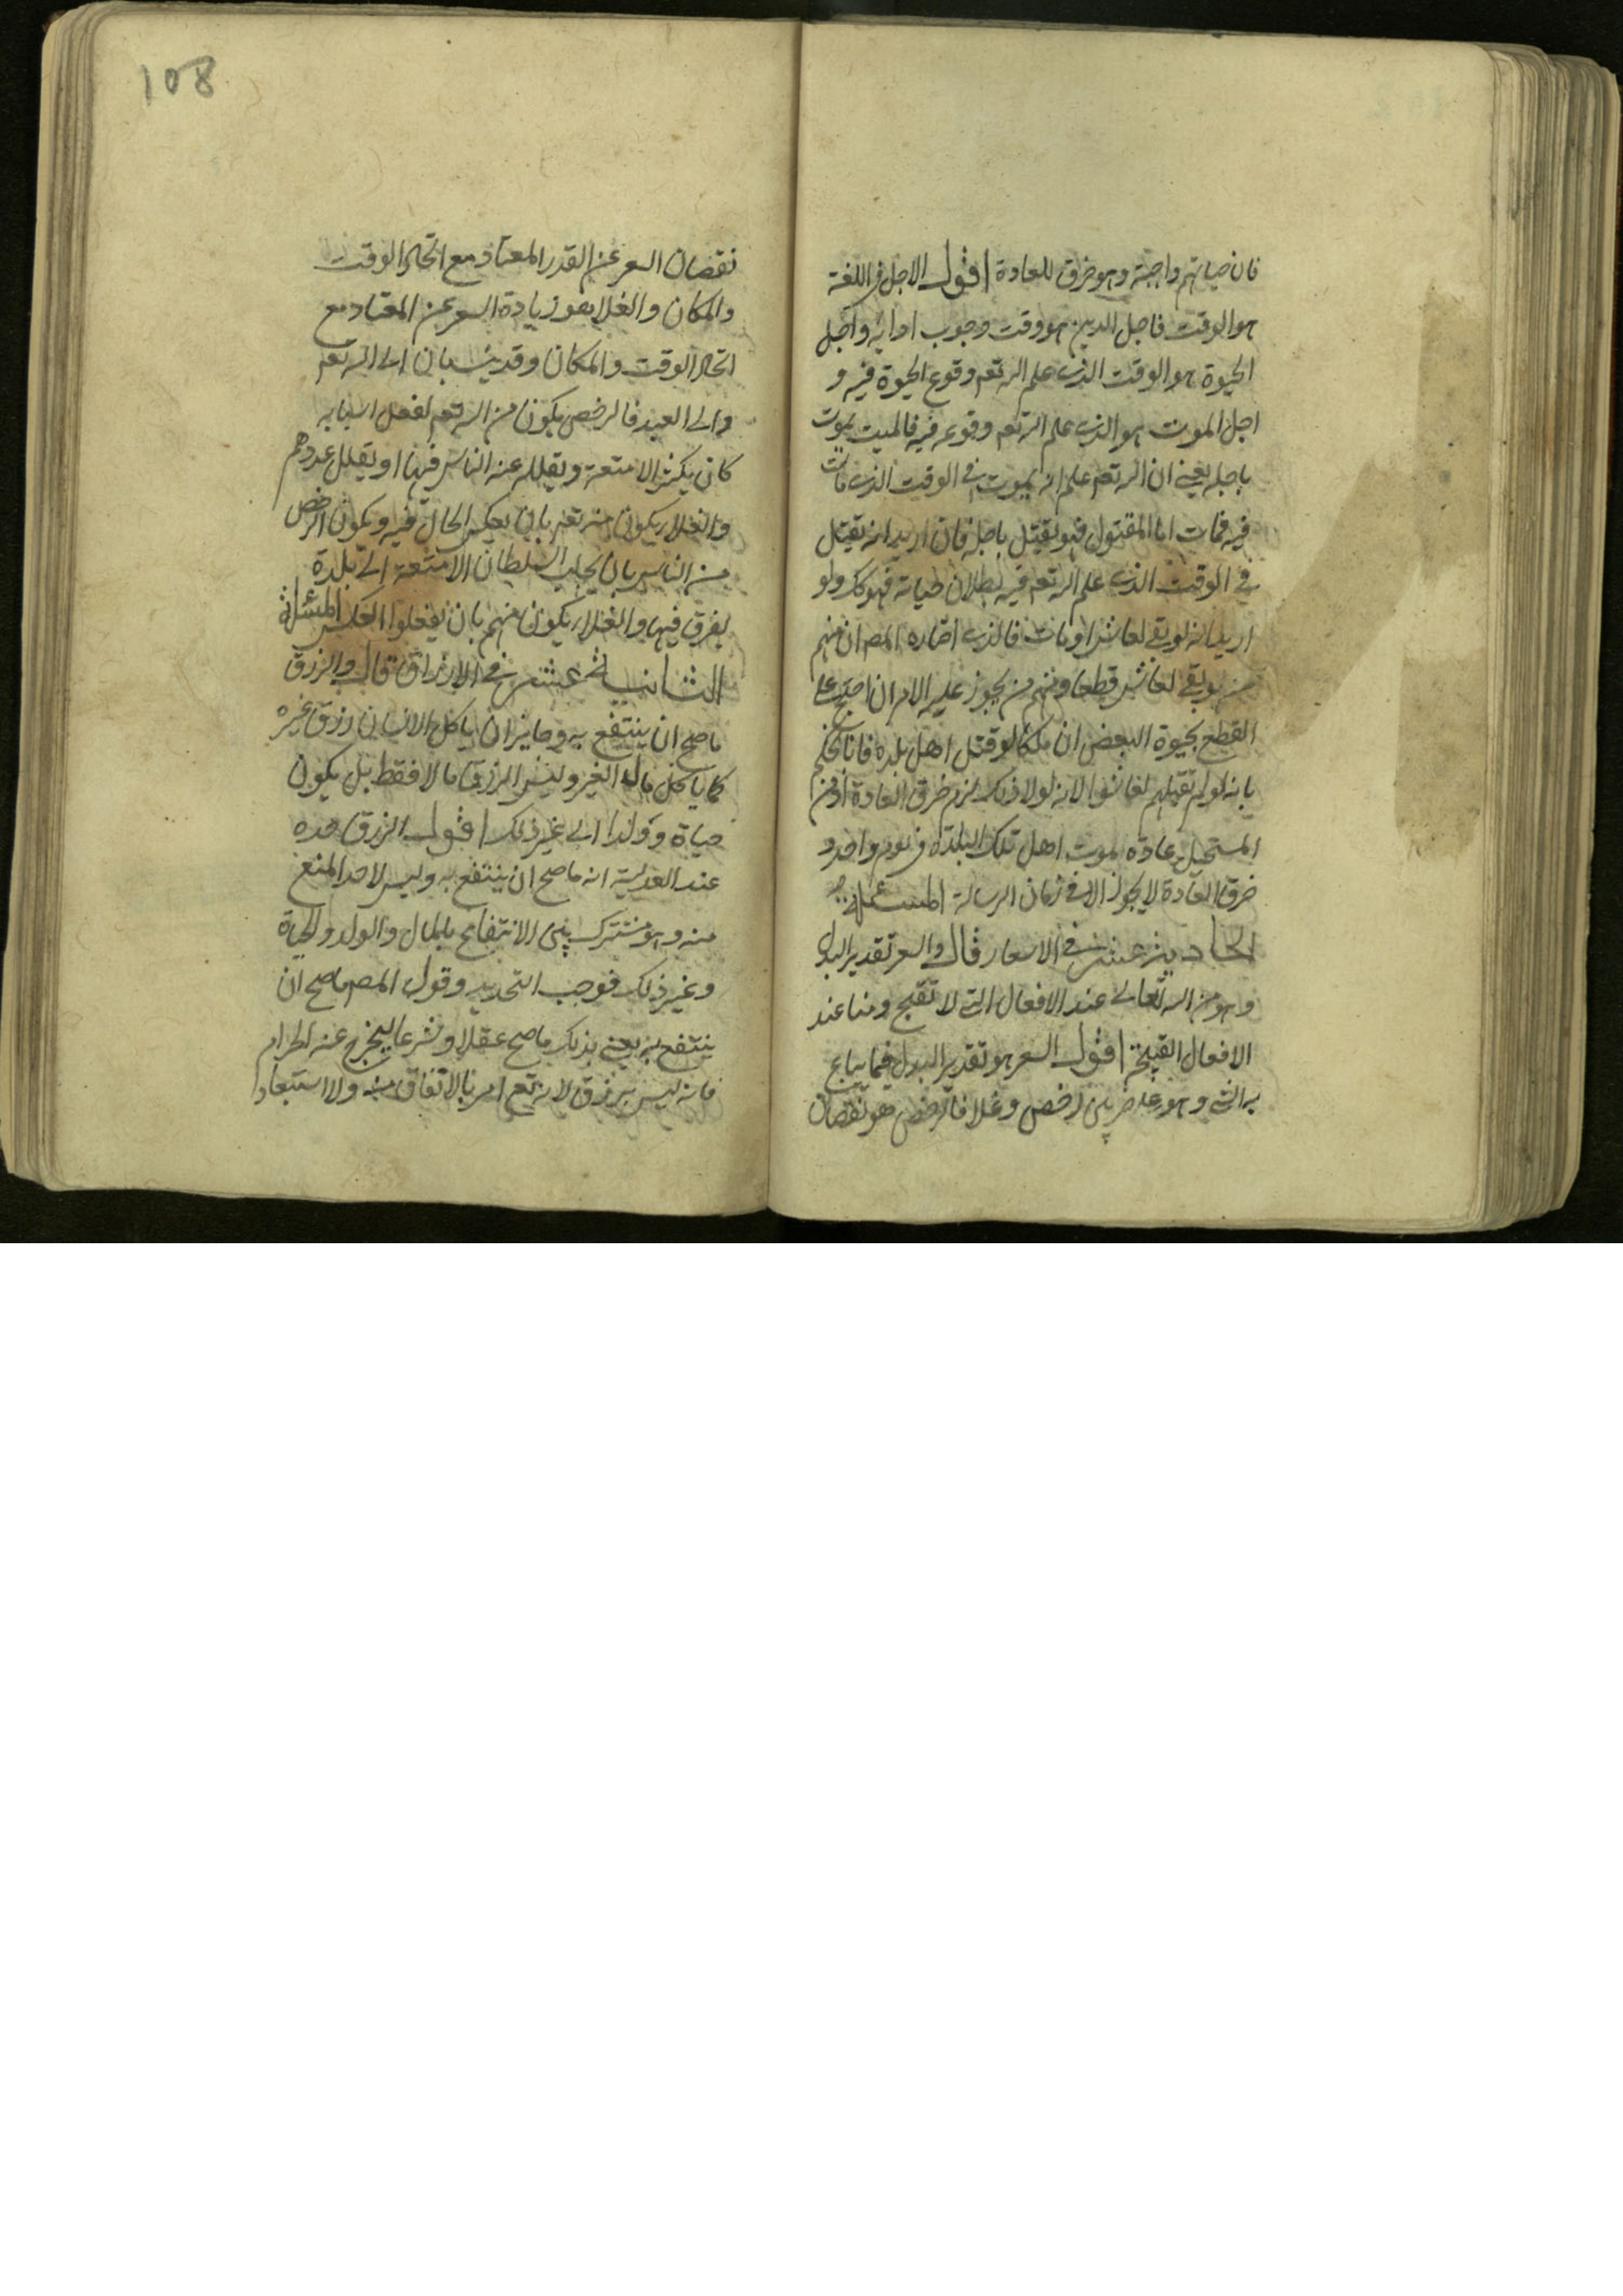 فان حياتهم واجبة وهو خرق للعادة اقول الاجل فى اللغة
هو الوقت فاجل الدين هو وقت وجوب ادايه واجل
الحيوة هو الوقت الذى علم الله تعم وقوع الحيوة فيه و
اجل الموت هو الذى علم الله تعم وقوعه فيه فالميت يموت
باجله يعنى ان الله تعم علم انه يموت فى الوقت الذى مات
فيه فمات اما المقتول فهو يقتل باجله فان اريد انه يقتل
فى الوقت الذى علم الله تعم فيه بطلان حياته فهو كك ولو
اريد انه لو بقى لعاش او مات فالذى اختاره المص ان منهم
من لو بقى لعاش قطعا ومنهم من يجوز عليه الامران احتج على
القطع بحيوة البعض ان ملكا لو قتل اهل بلده فانا نحكم
بانه لو لم يقتلهم لعاشوا لانه لولا ذلك لزم خرق العادة اذ من
المستحيل عادة موت اهل تلك البلدة فى يوم واحد و
خرق العادة لا يجوز الا فى زمان الرسالة المسئلة
الحادية عشر فى الاسعار قال والسعر تقدير البدل
وهو من الله تعالى عند الافعال التى لا تقبح ومنا عند
الافعال القبيحة اقول السعر هو تقدير البدل فيما يباع
به الشى وهو على ضربين رخص وغلا فالرخص هو نقصان
108
نقصان السعر عن القدر المعتاد مع اتحاد الوقت
والمكان والغلا هو زيادة السعر عن المعتاد مع
اتحاد الوقت والمكان وقد ينسبان الى الله تعم
والى العبد فالرخص يكون من الله تعم لفعل اسبابه
كان يكثر الامتعة ويقلل رغبة الناس فيها او يقلل عددهم
والغلاء يكون منه تعم بان يعكس الحال فيه ويكون الرخص
من الناس بان يجلب السلطان الامتعة الى بلدة
يفرق فيها والغلاء يكون منهم بان يفعلوا العكس المسئلة
الثانية عشر فى الارزاق قال والرزق
ما صح ان ينتفع به وجايز ان ياكل الانسان رزق غيره
كما ياكل مال الغير وليس الرزق مالا فقط بل يكون
حياة وولدا الى غير ذلك اقول الرزق حده
عند العدلية انه ما صح ان ينتفع به وليس لاحد المنع
منه وهو مشترك بين الانتفاع بالمال والولد والحياة
وغير ذلك فوجب التحديد وقول المص ما صح ان
ينتفع به يعنى بذلك ما صح عقلا وشرعا ليخرج عنه الحرام
فانه ليس برزق لانه تعم امر بالاتفاق منه ولا استبعاد